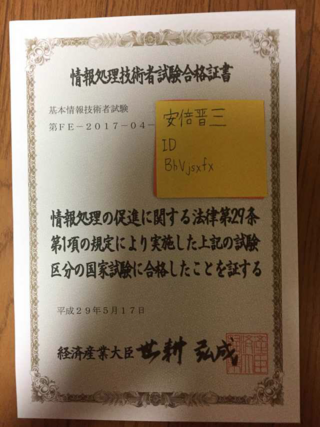 情報処理技術者試験合格証書
基本情報技術者試験
第FE-2017-04-
安倍晋三
ID
BhVjsxfx
情報処理の促進に関する法律第29条
第1項の規定により実施した上記の試験
区分の国家試験に合格したことを証する
平成29年5月17日
経済産業大臣 世耕弘成